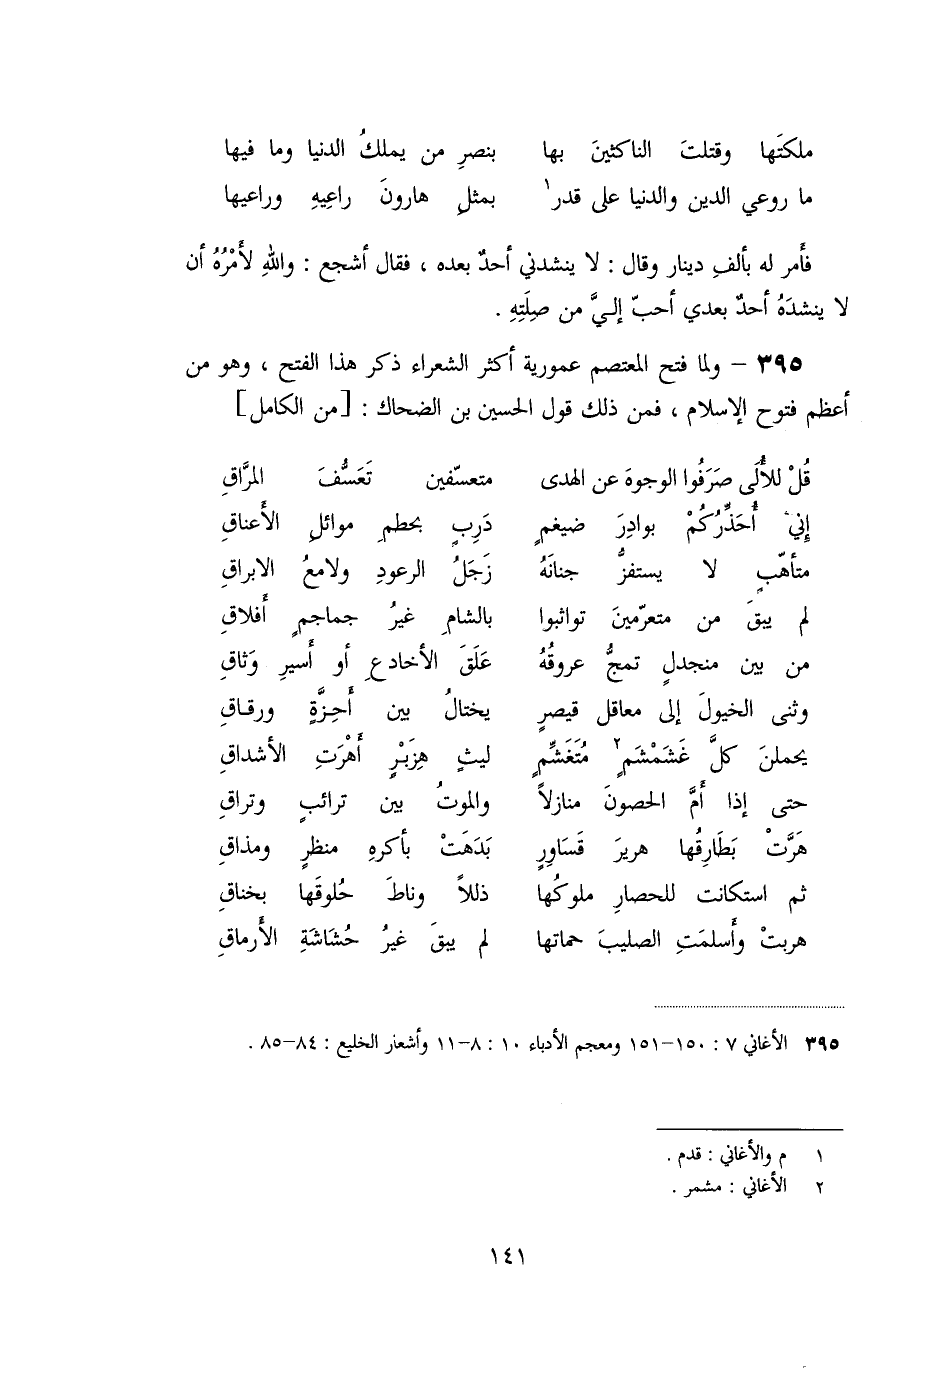 ملكتَها وقتلتَ الناكثينَ بها بنصرِ من يملكُ الدنيا وما فيها
ما روعي الدين والدنيا على قدر١ بمثلِ هارونَ راعِيهِ وراعيها
فأَمر له بألفِ دينار وقال : لا ينشدني أحدٌ بعده ، فقال أشجع : واللهِ لأَمْرُهُ أن
لا ينشدَهُ أحدٌ بعدي أحبّ إليَّ من صِلَتِهِ .
٣٩٥ – ولما فتح المعتصم عمورية أكثر الشعراء ذكر هذا الفتح ، وهو من
أعظم فتوح الإسلام ، فمن ذلك قول الحسين بن الضحاك : [من الكامل]
قُلْ للأُلَى صَرَفُوا الوجوهَ عن الهدى متعسّفين تَعَسُّفَ المرَّاقِ
إني أُحَذِّرُكُمْ بوادِرَ ضيغمٍ دَرِبٍ بحطمِ موائلِ الأَعناقِ
متأهّبٍ لا يستفزُّ جنانَهُ زَجَلُ الرعودِ ولامعُ الابراقِ
لم يبقَ من متعرّمينَ تواثبوا بالشامِ غيرُ جماجمٍ أَفلاقِ
من بين منجدلٍ تمجُّ عروقُهُ عَلَقَ الأخادعِ أو أَسيرِ وَثاقِ
وثنى الخيولَ إلى معاقل قيصرٍ يختالُ بين أَحِزَّةٍ ورقاقِ
يحملنَ كلَّ غَشَمْشَمٍ٢ مُتَغَشِّمٍ ليثٍ هِزَبْرٍ أَهْرَتِ الأشداقِ
حتى إذا أَمَّ الحصونَ منازلاً والموتُ بين ترائبٍ وتراقِ
هَرَّتْ بَطَارِقُها هريرَ قَسَاورٍ بَدَهَتْ بأكرهِ منظرٍ ومذاقِ
ثم استكانت للحصارِ ملوكُها ذللاً وناطَ حُلوقَها بخناقِ
هربتْ وأَسلمَتِ الصليبَ حماتها لم يبقَ غيرُ حُشَاشَةِ الأَرماقِ
٣٩٥ الأغاني ٧ : ١٥٠–١٥١ ومعجم الأدباء ١٠ : ٨–١١ وأشعار الخليع : ٨٤–٨٥ .
١ م والأغاني : قدم .
٢ الأغاني : مشمر .
١٤١